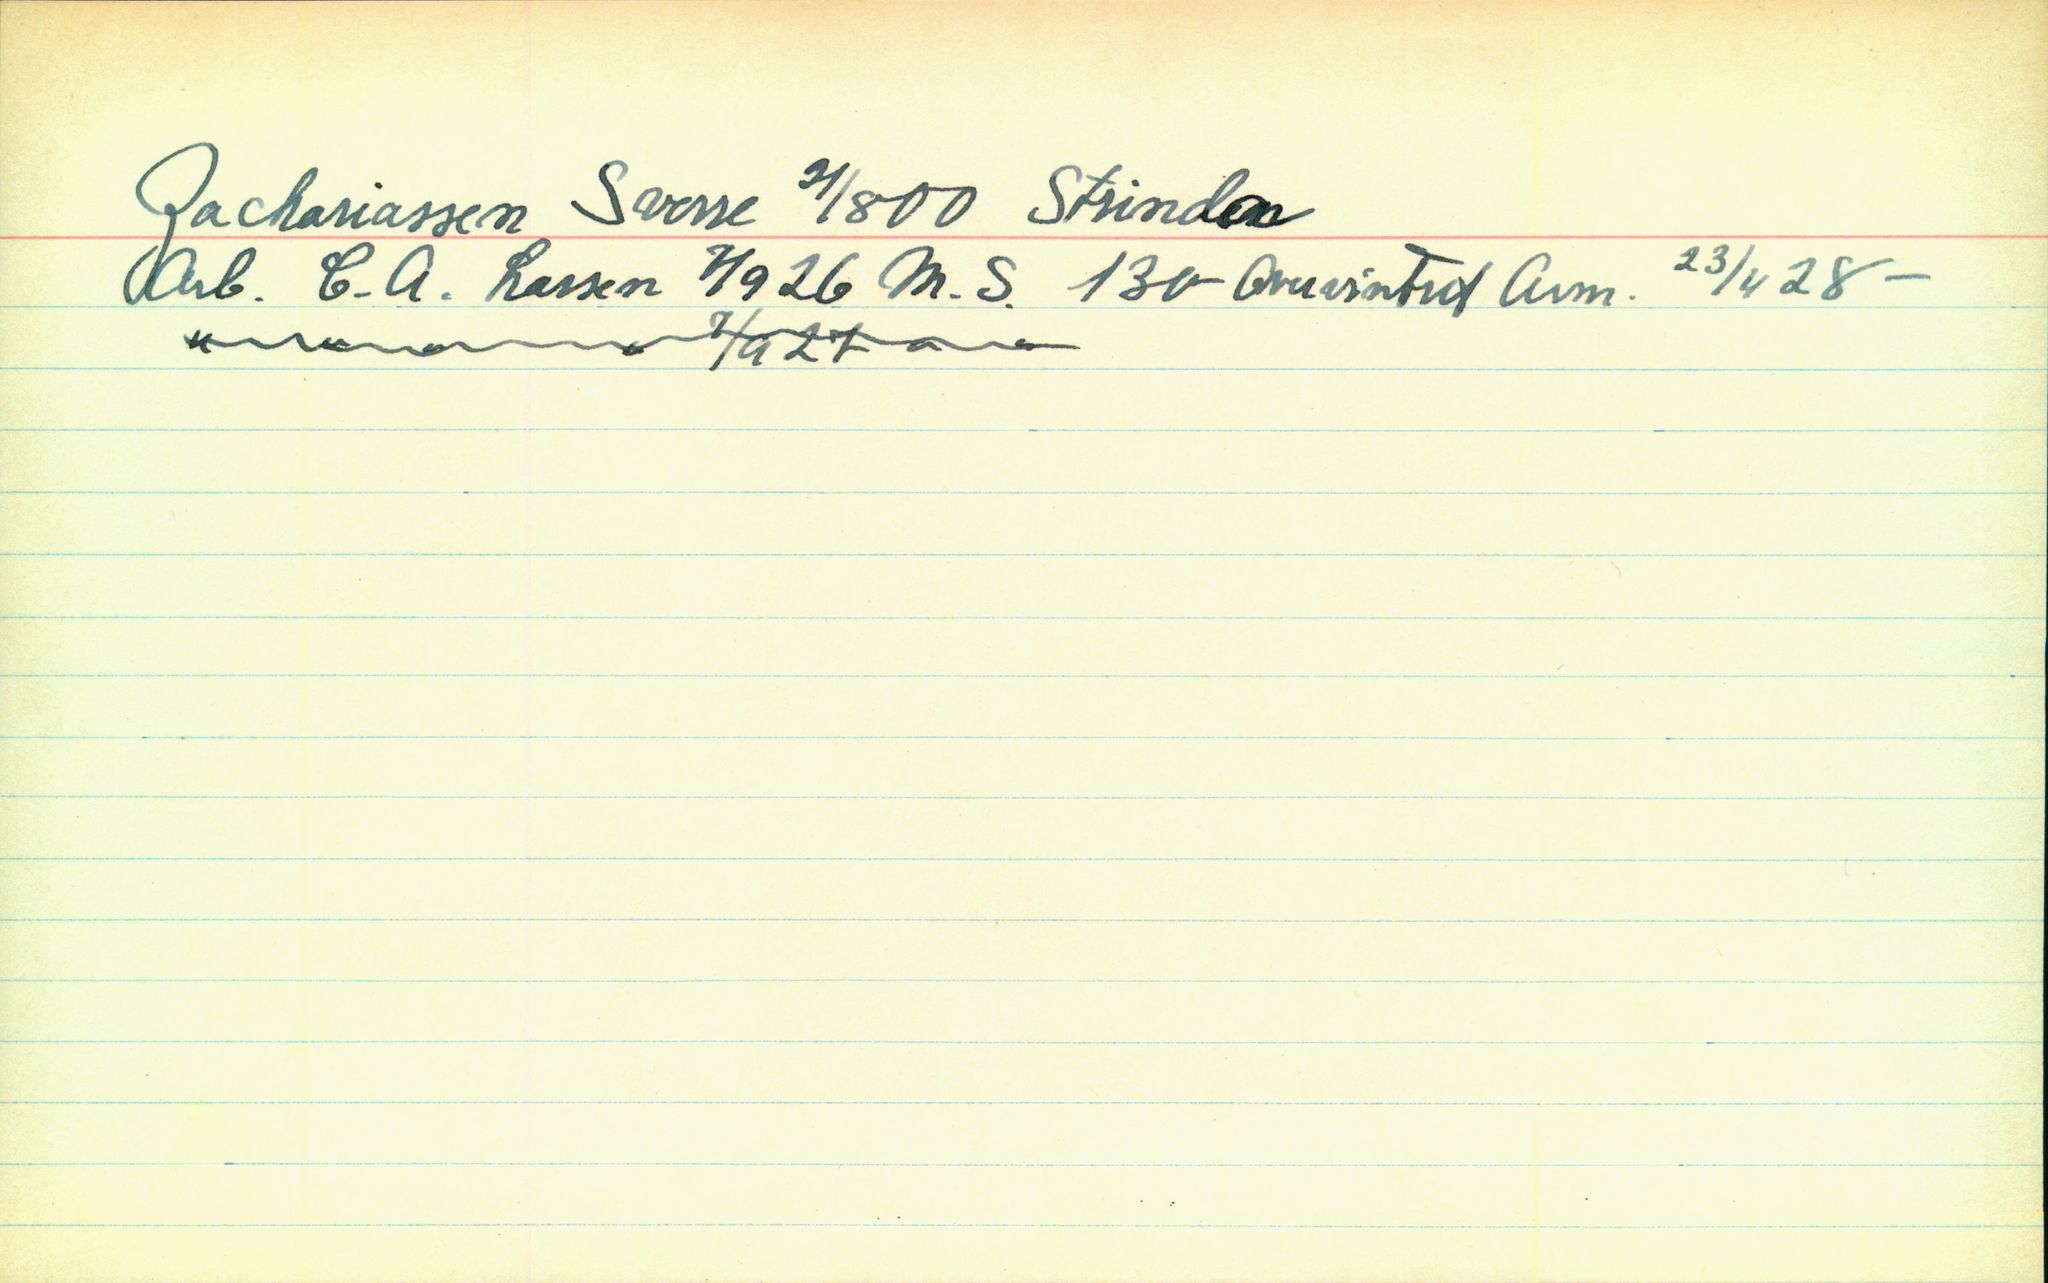 Zachariassen Sverre 21/8 00 Strinda
Arb. C.A. Larsen 7/9 26 M.S. 130 Overvintret Avm. 23/4 28 -
" 7/9 27